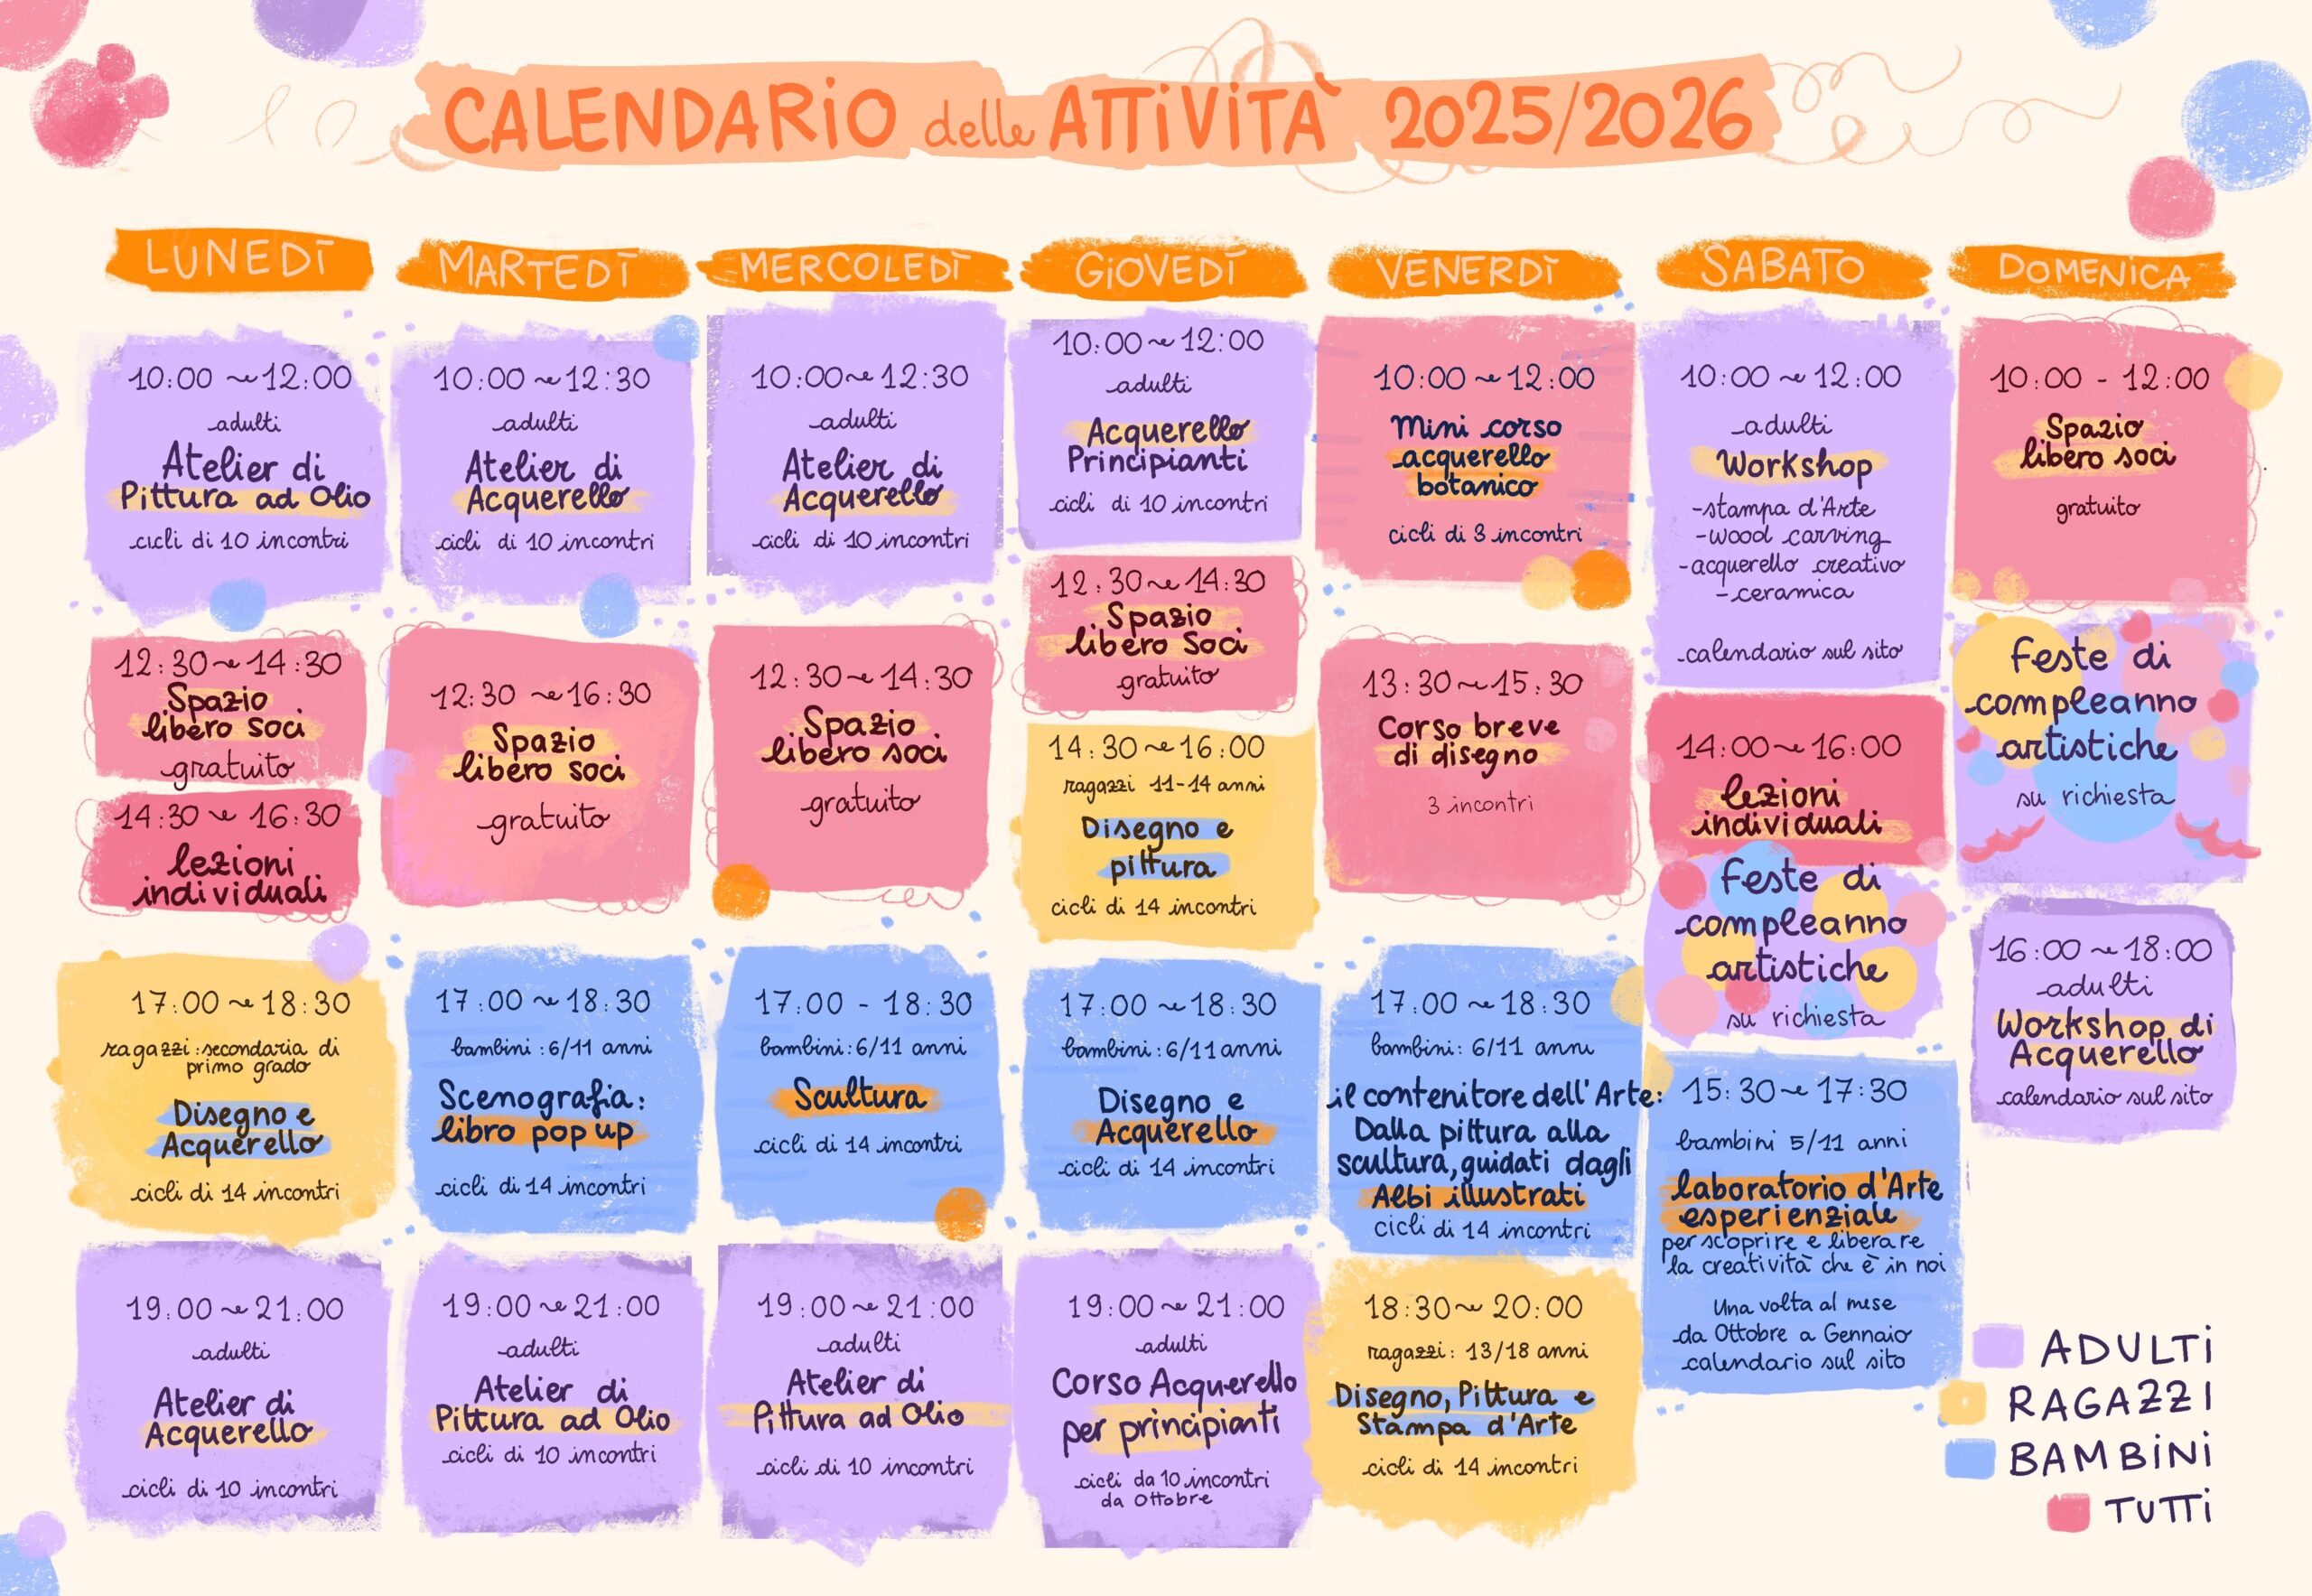 CALENDARIO delle ATTIVITÀ 2025/2026
LUNEDÌ
10:00 ~ 12:00
adulti
Atelier di
Pittura ad Olio
cicli di 10 incontri
12:30 ~ 14:30
Spazio
libero soci
gratuito
14:30 ~ 16:30
lezioni
individuali
17:00 ~ 18:30
ragazzi: secondaria di
primo grado
Disegno e
Acquerello
cicli di 14 incontri
19:00 ~ 21:00
adulti
Atelier di
Acquerello
cicli di 10 incontri
MARTEDÌ
10:00 ~ 12:30
adulti
Atelier di
Acquerello
cicli di 10 incontri
12:30 ~ 16:30
Spazio
libero soci
gratuito
17:00 ~ 18:30
bambini: 6/11 anni
Scenografia:
libro pop up
cicli di 14 incontri
19:00 ~ 21:00
adulti
Atelier di
Pittura ad Olio
cicli di 10 incontri
MERCOLEDÌ
10:00 ~ 12:30
adulti
Atelier di
Acquerello
cicli di 10 incontri
12:30 ~ 14:30
Spazio
libero soci
gratuito
17:00 - 18:30
bambini: 6/11 anni
Scultura
cicli di 14 incontri
19:00 ~ 21:00
adulti
Atelier di
Pittura ad Olio
cicli di 10 incontri
GIOVEDÌ
10:00 ~ 12:00
adulti
Acquerello
Principianti
cicli di 10 incontri
12:30 ~ 14:30
Spazio
libero Soci
gratuito
14:30 ~ 16:00
ragazzi 11-14 anni
Disegno e
pittura
cicli di 14 incontri
17:00 ~ 18:30
bambini: 6/11 anni
Disegno e
Acquerello
cicli di 14 incontri
19:00 ~ 21:00
adulti
Corso Acquerello
per principianti
cicli da 10 incontri
da Ottobre
VENERDÌ
10:00 ~ 12:00
Mini corso
acquerello
botanico
cicli di 3 incontri
13:30 ~ 15:30
Corso breve
di disegno
3 incontri
17:00 ~ 18:30
bambini: 6/11 anni
il contenitore dell'Arte:
Dalla pittura alla
scultura, guidati dagli
Albi illustrati
cicli di 14 incontri
18:30 ~ 20:00
ragazzi: 13/18 anni
Disegno, Pittura e
Stampa d'Arte
cicli di 14 incontri
SABATO
10:00 ~ 12:00
adulti
Workshop
-stampa d'Arte
-wood carving
-acquerello creativo
-ceramica
calendario sul sito
14:00 ~ 16:00
lezioni
individuali
Feste di
compleanno
artistiche
su richiesta
15:30 ~ 17:30
bambini 5/11 anni
laboratorio d'Arte
esperienziale
per scoprire e liberare
la creatività che è in noi
Una volta al mese
da Ottobre a Gennaio
calendario sul sito
DOMENICA
10:00 - 12:00
Spazio
libero soci
gratuito
Feste di
compleanno
artistiche
su richiesta
16:00 ~ 18:00
adulti
Workshop di
Acquerello
calendario sul sito
ADULTI
RAGAZZI
BAMBINI
TUTTI